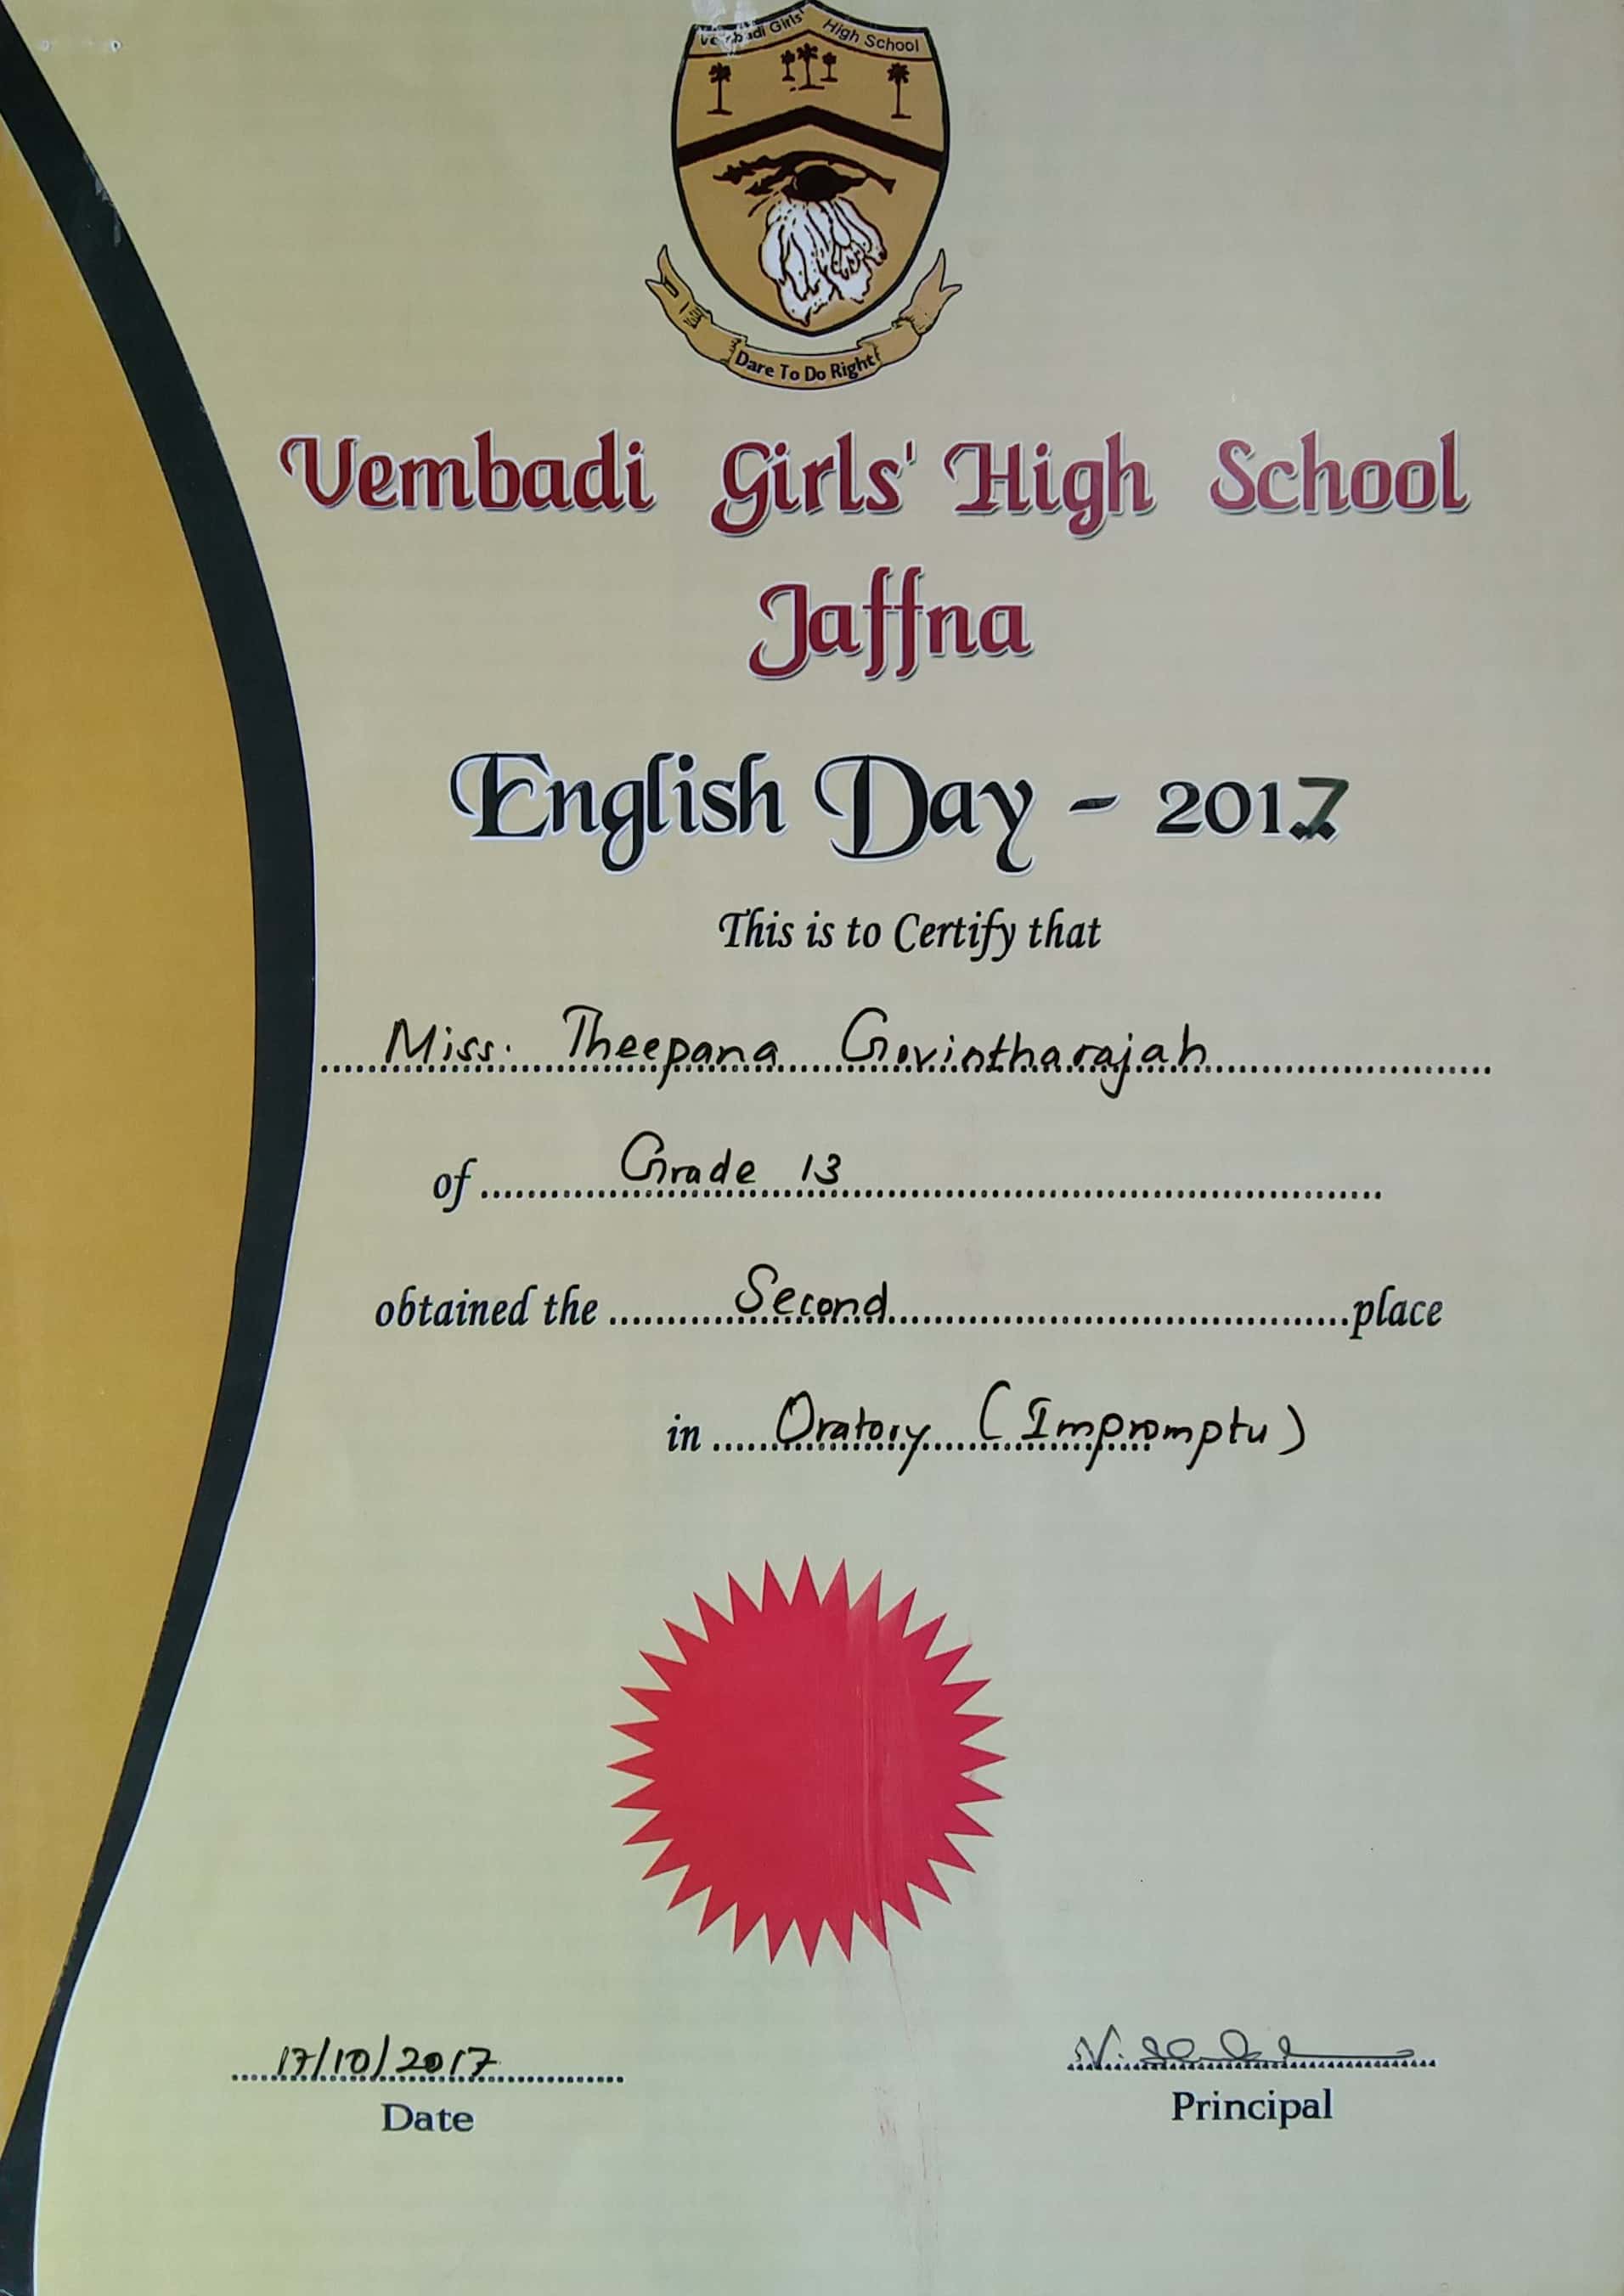 Vembadi Girls' High School
Dare To Do Right
Vembadi Girls' High School
Jaffna
English Day - 2017
This is to Certify that
Miss. Theepana Govintharajah
of Grade 13
obtained the Second place
in Oratory (Impromptu)
17/10/2017
Date
Principal